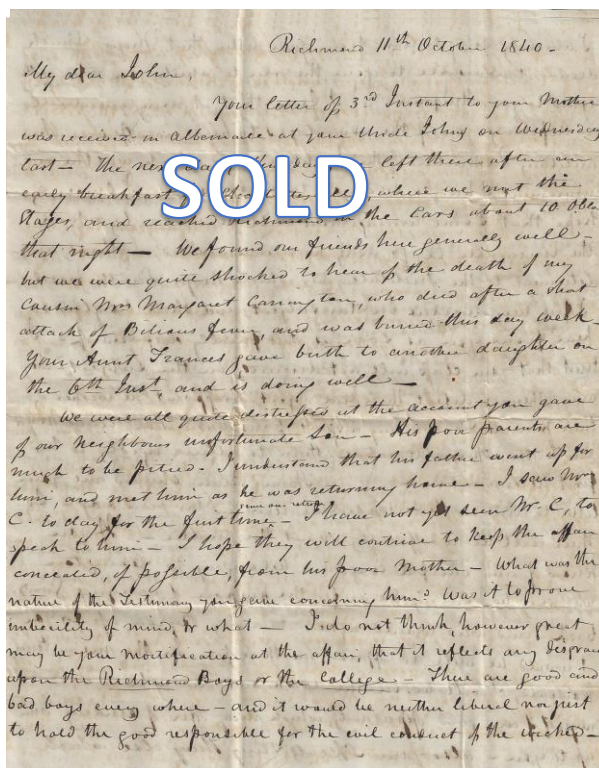 Richmond 11th October 1840 -
My dear John,
Your letter of 3rd Instant to your Mother
was received in Albemarle at your Uncle Johns on Wednesday
last - The next day left there after an
early breakfast where we met the
Stages, and reached Richmond in the Cars about 10 OClo
that night - We found our friends here generally well -
but we were quite shocked to hear of the death of my
Cousin Mrs Margaret Carrington, who died after a short
attack of Bilious fever, and was buried this day week -
Your Aunt Frances gave birth to another daughter on
the 6th Inst. and is doing well -
We were all quite distressed at the account you gave
of our neighbours unfortunate Son - His poor parents are
much to be pitied - I understand that his father went up for
him, and met him as he was returning home - I saw Mr
C. to day for the first time - I have not yet seen Mr. C, to
since our return
speak to him - I hope they will continue to keep the affair
concealed, if possible, from his poor Mother - What was the
nature of the Testimony you gave concerning him? Was it to prove
imbecility of mind, or what - I do not think, however great
may be your mortification at the affair, that it reflects any disgrace
upon the Richmond Boys or the College - There are good and
bad boys every where - and it would be neither liberal nor just
to hold the good responsible for the evil conduct of the wicked -
SOLD